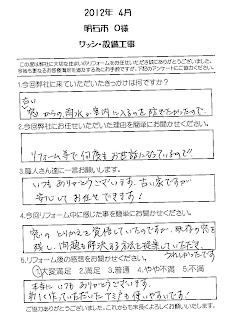 2012年 4月
明石市 O様
サッシ・設備工事
この度は弊社に大切な住まいのリフォームをお任せいただき誠にありがとうございました。
1.今回弊社に来ていただいたきっかけは何ですか？
古い
窓からの雨水が室内に入るのを
2.今回弊社にお任せいただいた理由を簡単にお聞かせください。
リフォーム等で何度もお世話になっているので
3.職人さん達に一言お願いします。
いつもありがとうございます。古い家ですが
安心してお任せできます！
4.今回リフォーム中に感じた事を簡単にお聞かせください。
窓のとりかえを覚悟していたのですが、既存の窓を
残し、問題を解決する方法を提案していただき、
うれしかったです
5.リフォーム後の感想をお聞かせください。
①大変満足 2.満足 3.普通 4.やや不満 5.不満
本当にいつもありがとうございます。
新しく作っていただいた も使いやすいです！
ご協力ありがとうございました。これからも末長くよろしくお願いいたします。